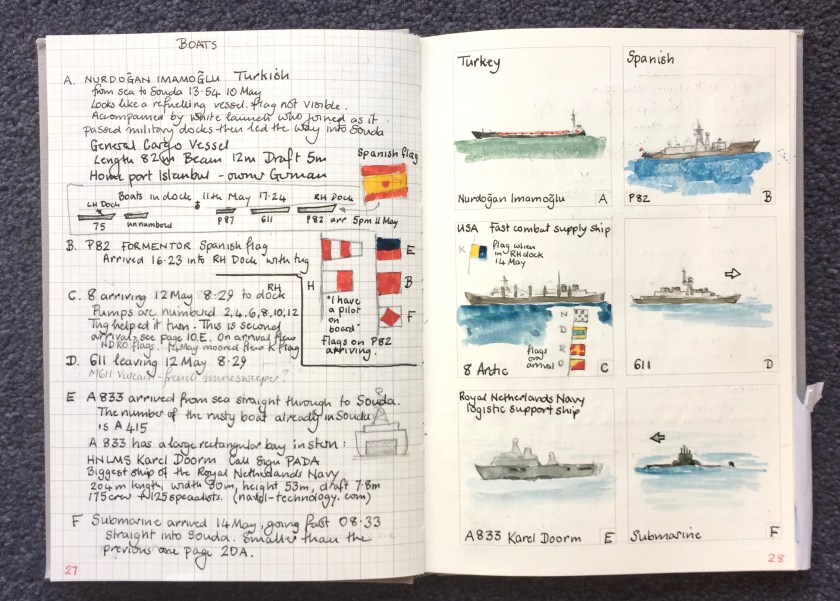 BOATS
A. NURDOĞAN IMAMOĞLU Turkish
from sea to Souda 13.54 10 May
Looks like a refuelling vessel. flag not visible.
Accompanied by white launch who joined as it
passed military docks then led the way into Souda
General Cargo Vessel
Length 82m Beam 12m Draft 5m
Home port Istanbul - owner German
Spanish flag
Boats in dock 11th May 17.24
LH Dock
RH Dock
75 unnumbered P87 611 P82 arr 5pm 11 May
B. P82 FORMENTOR Spanish flag
Arrived 16.23 into RH Dock with tug
E
H
B
F
"I have
a pilot
on
board"
flags on P82
arriving.
C. 8 arriving 12 May 8.29 to RH dock
Pumps are numbered 2,4,6,8,10,12
Tug helped it turn. This is second
arrival - see page 10E. On arrival flew
NDRO flags. 14 May moored flew K flag
D. 611 leaving 12 May 8.29
M611 Vulcain - french minesweeper?
E A833 arrived from sea straight through to Souda.
The number of the rusty boat already in Souda
is A415
A833 has a large rectangular bay in stern:
HNLMS Karel Doorm Call Sign PADA
Biggest ship of the Royal Netherlands Navy
204m length, width 30m, height 53m, draft 7.8m
175 crew + 125 specialists. (naval-technology.com)
F Submarine arrived 14 May, going fast 08.33
straight into Souda. Smaller than the
previous one page 20A.
27
Turkey
Nurdoğan Imamoğlu A
Spanish
P82 B
USA Fast combat supply ship
K
flag when
in RH dock
14 May
N
D
R
O
flags
on
arrival
8 Arctic C
611 D
Royal Netherlands Navy
logistic support ship
A833 Karel Doorm E
Submarine F
28